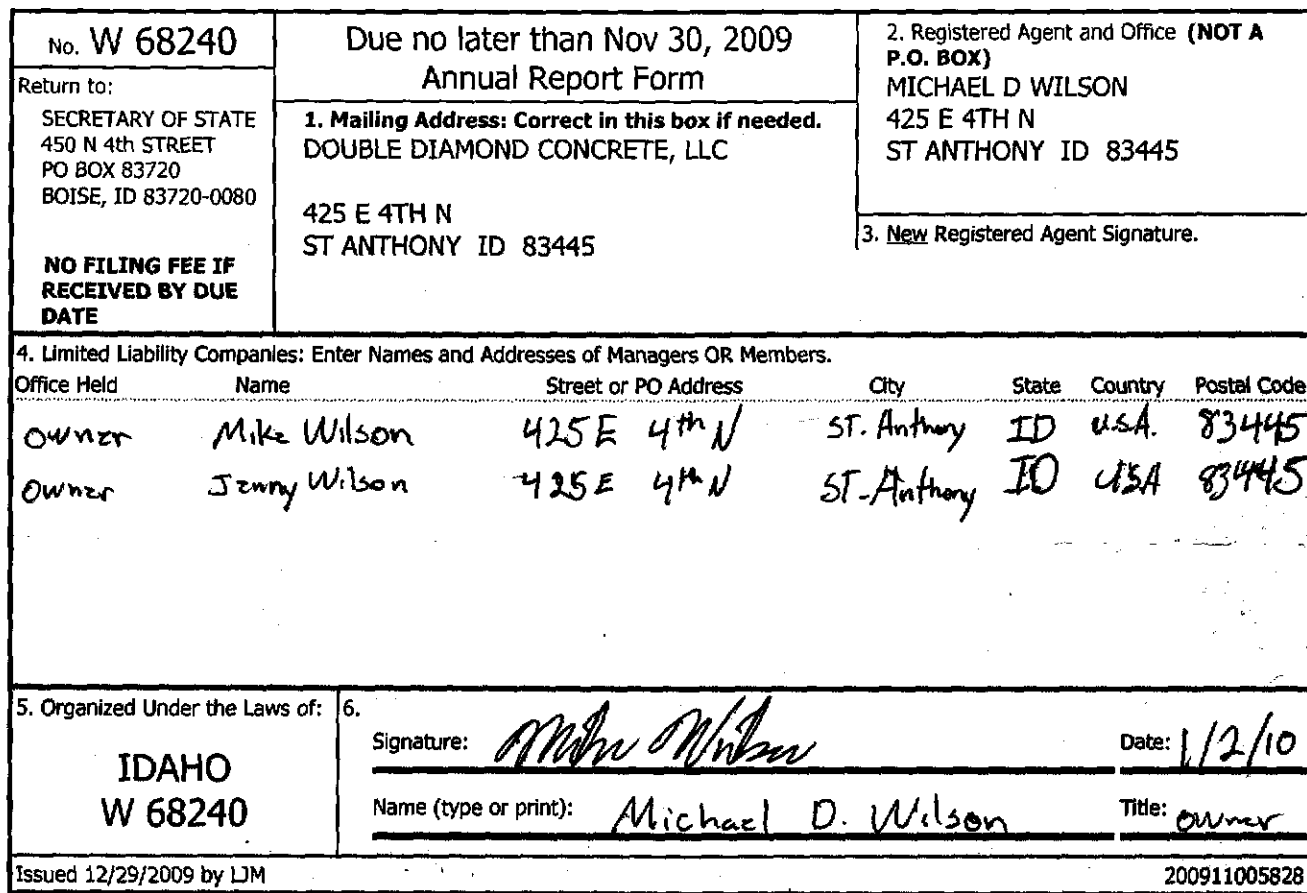 No. W 68240
Return to:
SECRETARY OF STATE
450 N 4th STREET
PO BOX 83720
BOISE, ID 83720-0080
NO FILING FEE IF
RECEIVED BY DUE
DATE
Due no later than Nov 30, 2009
Annual Report Form
1. Mailing Address: Correct in this box if needed.
DOUBLE DIAMOND CONCRETE, LLC
425 E 4TH N
ST ANTHONY ID 83445
2. Registered Agent and Office (NOT A
P.O. BOX)
MICHAEL D WILSON
425 E 4TH N
ST ANTHONY ID 83445
3. New Registered Agent Signature.
4. Limited Liability Companies: Enter Names and Addresses of Managers OR Members.
Office Held Name Street or PO Address City State Country Postal Code
owner Mike Wilson 425 E 4th N ST. Anthony ID U.S.A. 83445
Owner Jenny Wilson 425 E 4th N ST-Anthony ID USA 83445
5. Organized Under the Laws of:
IDAHO
W 68240
6.
Signature: Mike Wilson Date: 1/2/10
Name (type or print): Michael D. Wilson Title: owner
Issued 12/29/2009 by LJM 200911005828